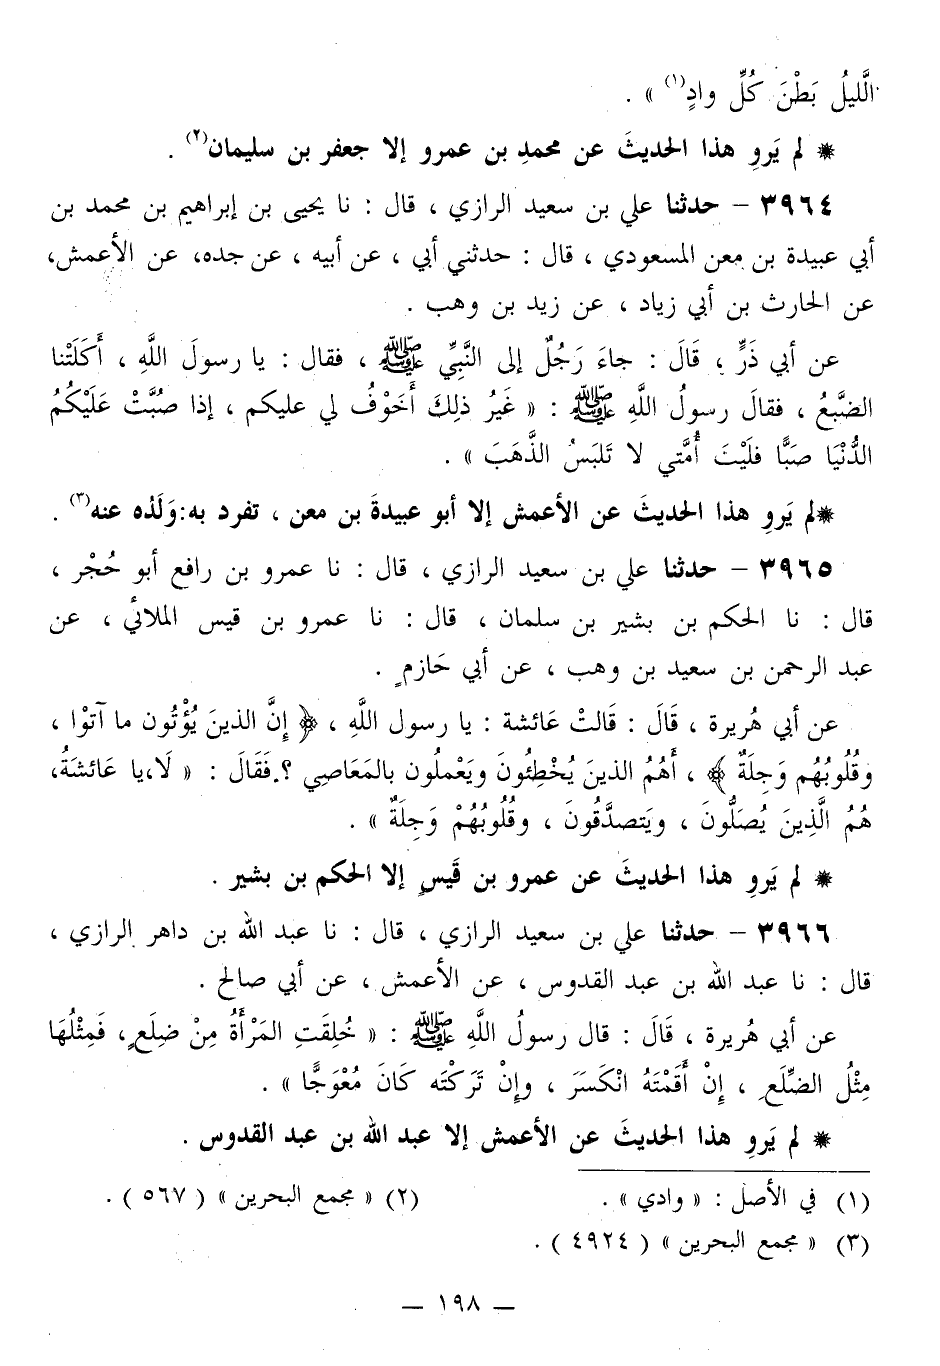 الَّليلُ بَطْنَ كُلِّ وادٍ(١) » .
* لم يَروِ هذا الحديثَ عن محمدِ بن عمرو إلا جعفر بن سليمان(٢) .
٣٩٦٤ – حدثنا علي بن سعيد الرازي ، قال : نا يحيى بن إبراهيم بن محمد بن
أبي عبيدة بن معن المسعودي ، قال : حدثني أبي ، عن أبيه ، عن جده، عن الأعمش،
عن الحارث بن أبي زياد ، عن زيد بن وهب .
عن أبي ذَرٍّ ، قَالَ : جاءَ رَجُلٌ إلى النَّبِيِّ ﷺ ، فقال : يا رسولَ اللَّهِ ، أَكَلَتْنا
الضَّبَعُ ، فقالَ رسولُ اللَّهِ ﷺ : « غَيرُ ذلِكَ أَخَوْفُ لي عليكم ، إذا صُبَّتْ عَلَيْكُمُ
الدُّنْيَا صَبًّا فلَيْتَ أُمَّتي لا تَلبَسُ الذَّهَبَ » .
*لم يَروِ هذا الحديثَ عن الأعمش إلا أبو عبيدةَ بن معن ، تفرد به:وَلَدُه عنه(٣) .
٣٩٦٥ – حدثنا علي بن سعيد الرازي ، قال : نا عمرو بن رافع أبو حُجْر ،
قال : نا الحكم بن بشير بن سلمان ، قال : نا عمرو بن قيس الملائي ، عن
عبد الرحمن بن سعيد بن وهب ، عن أبي حَازمٍ .
عن أبي هُريرة ، قَالَ : قَالتْ عَائشة : يا رسول اللَّهِ ، ﴿ إِنَّ الذينَ يُؤْتُون ما آتوْا ،
وقُلُوبُهُم وَجِلَةٌ ﴾ ، أَهُمُ الذينَ يُخْطِئُونَ ويَعْملُون بالمَعَاصِي ؟.فَقَالَ : « لَا،يا عَائشَةُ،
هُمُ الَّذِينَ يُصَلُّونَ ، ويَتصدَّقُونَ ، وقُلُوبُهُمْ وَجِلَةٌ » .
* لم يَروِ هذا الحديثَ عن عمرو بن قَيسٍ إلا الحكم بن بشير .
٣٩٦٦ – حدثنا علي بن سعيد الرازي ، قال : نا عبد الله بن داهر الرازي ،
قال : نا عبد الله بن عبد القدوس ، عن الأعمش ، عن أبي صالح .
عن أبي هُريرة ، قَالَ : قال رسولُ اللَّهِ ﷺ : « خُلِقَتِ المَرْأَةُ مِنْ ضِلَعٍ، فَمِثْلُهَا
مِثْلُ الضِّلَعِ ، إِنْ أَقَمْتَهُ انْكَسَرَ ، وإنْ تَرَكْتَه كَانَ مُعْوَجًّا » .
* لم يَروِ هذا الحديثَ عن الأعمش إلا عبد الله بن عبد القدوس .
(١) في الأصل : « وادي » . (٢) « مجمع البحرين » ( ٥٦٧ ) .
(٣) « مجمع البحرين » ( ٤٩٢٤ ) .
– ١٩٨ –